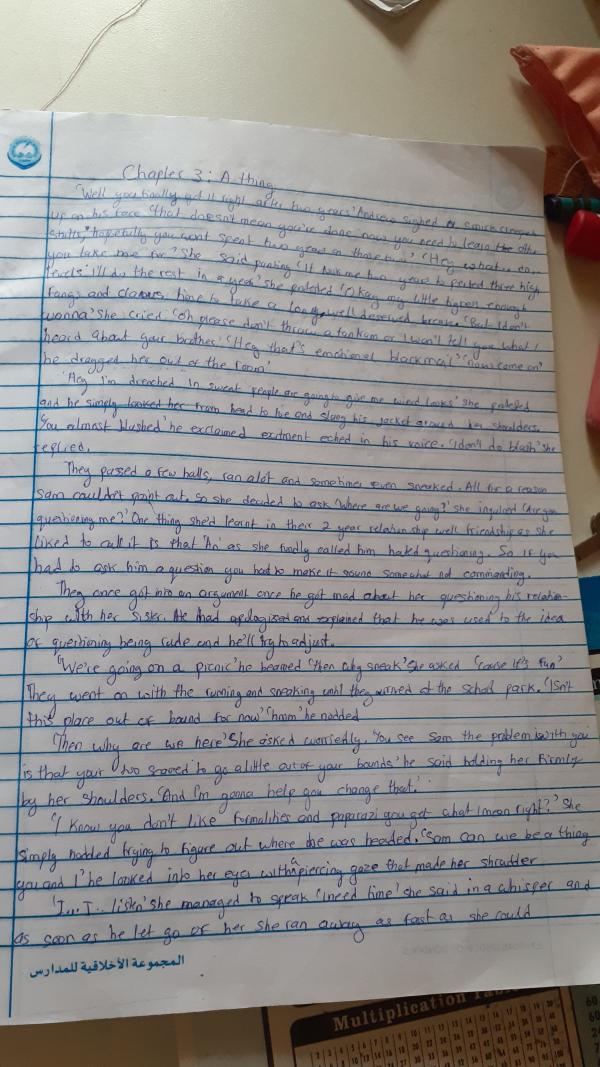 Chapter 3: A thing
'Well you finally got it right after two years' Andrew sighed a smirk
up on his face 'that doesn't mean you're done now you need to learn the other
shifts, hopefully you wont spent two years on those too' 'Hey what do
you take me for' She said panting 'it took me two years to perfect three high
levels I'll do the rest in a year' she protested 'Okay my little hyper enough
fangs and claws, time to take a long well deserved break.' 'But I don't
wanna' She cried 'Oh please don't throw a tantum or I won't tell you what I
heard about your brother' 'Hey that's emotional blackmail' 'now come on'
he dragged her out of the room'
'Hey I'm drenched in sweat people are going to give me weird looks' she protested
and he simply looked her from head to toe and slang his jacket around her shoulders.
'You almost blushed' he exclaimed exitment eched in his voice. 'I don't do blush' she
replied.
They passed a few halls, ran alot and sometimes even sneaked. All for a reason
Sam couldn't point out. So she decided to ask 'Where are we going?' she inquired 'Are you
questioning me?' One thing she'd learnt in their 2 year relationship well friendship as she
liked to call it is that 'An' as she fundly called him hated questioning. So if you
had to ask him a question you had to make it sound somewhat not commanding.
They once got into an argument once he got mad about her questioning his relation-
ship with her sister. He had apologised and explained that he was used to the idea
of questioning being rude and he'll try to adjust.
'We're going on a picnic' he beamed 'then why sneak' She asked 'cause it's fun'
They went on with the running and sneaking until they arrived at the school park. 'Isn't
this place out of bound for now' 'hmm' he nodded
'Then why are we here' She asked worriedly. 'You see Sam the problem is with you
is that your too scared to go a little out of your bounds' he said holding her firmly
by her shoulders. 'And I'm gonna help you change that.'
'I know you don't like formalities and paparazi you get what I mean right?' She
simply nodded trying to figure out where he was headed. 'Sam can we be a thing
you and I' he looked into her eyes with a piercing gaze that made her shrudder
'I... I... listen' she managed to speak 'I need time' she said in a whisper and
as soon as he let go of her she ran away as fast as she could
المجموعة الأخلاقية للمدارس
Multiplication